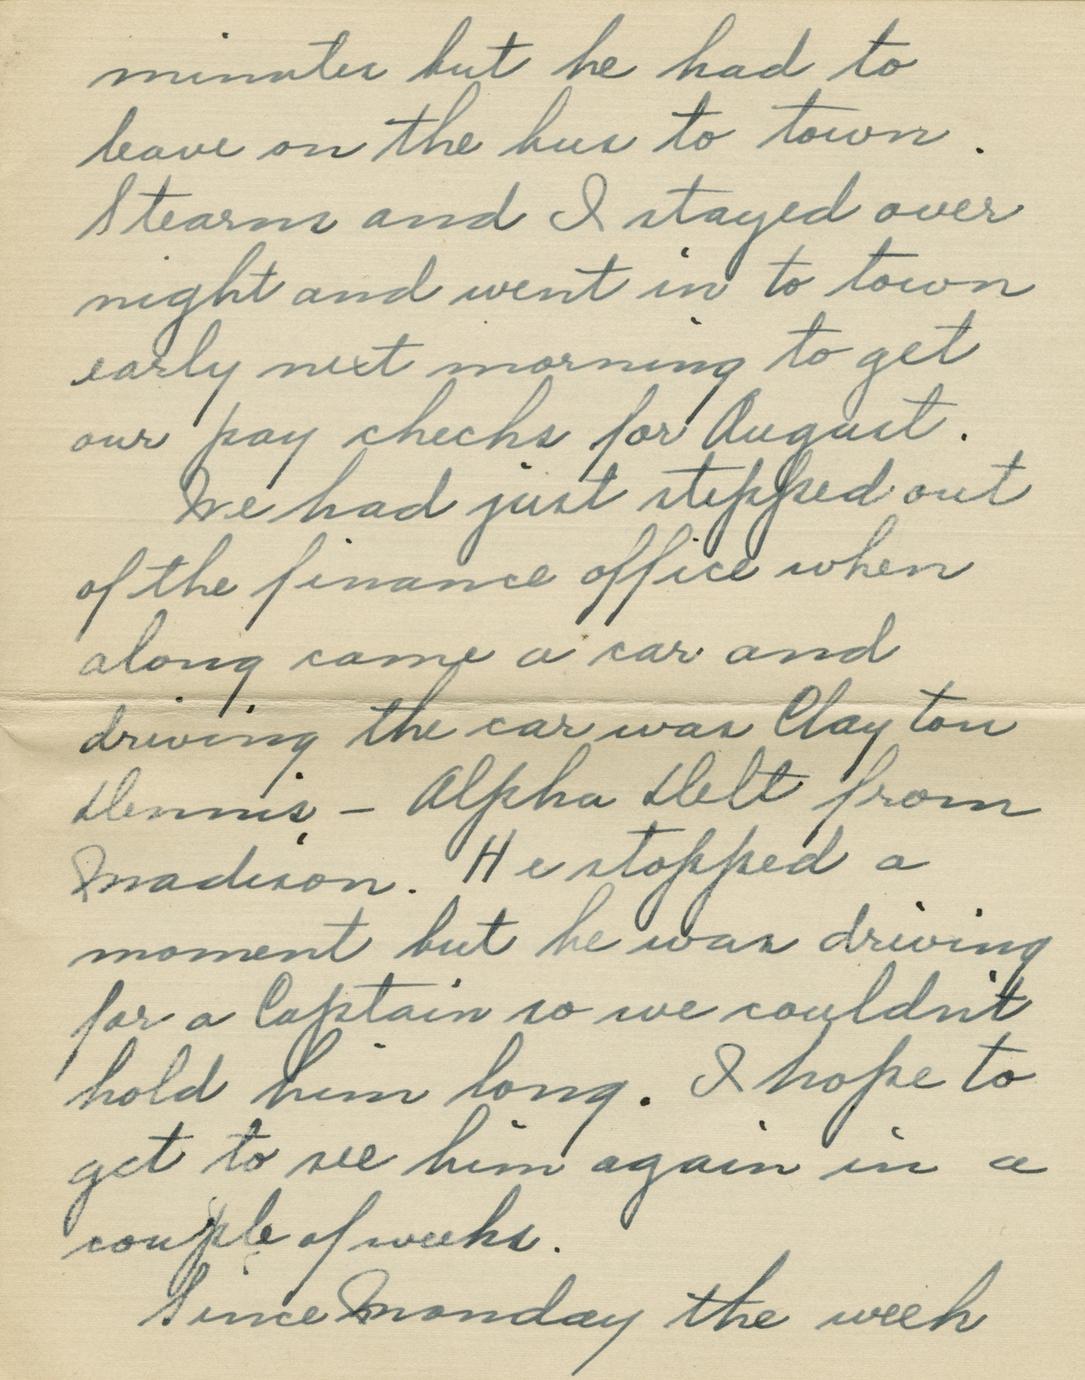 minutes but he had to
leave on the bus to town.
Stearns and I stayed over
night and went in to town
early next morning to get
our pay checks for August.
We had just stepped out
of the finance office when
along came a car and
driving the car was Clayton
Dennis - Alpha Delt from
Madison. He stopped a
moment but he was driving
for a Captain so we couldn't
hold him long. I hope to
get to see him again in a
couple of weeks.
Since Monday the week